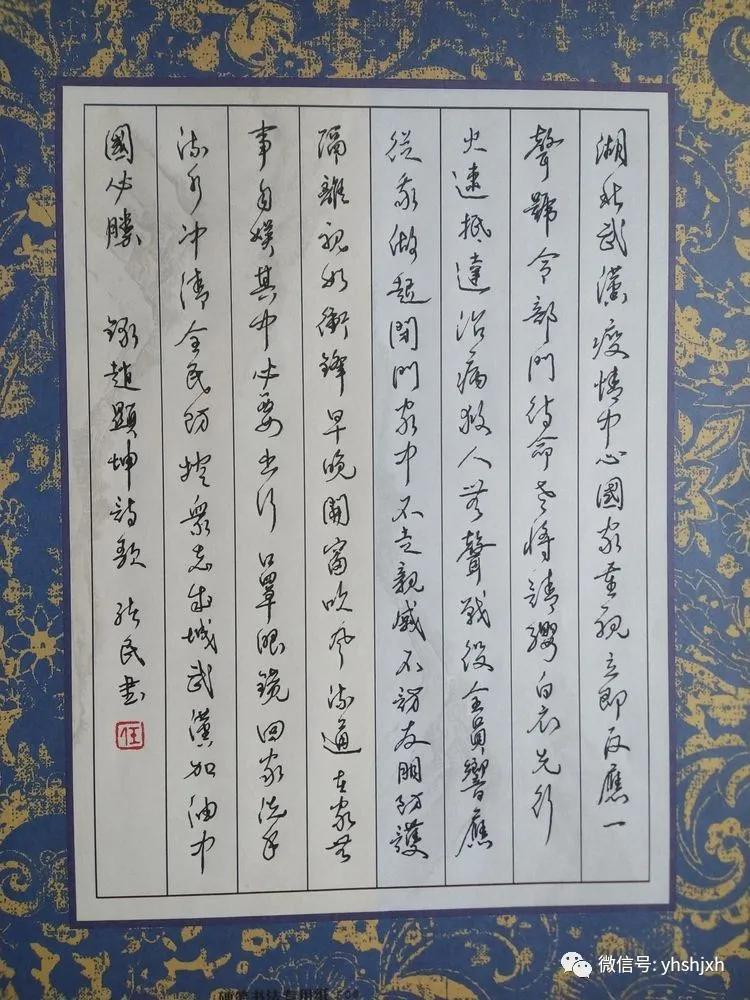 湖北武漢疫情中心國家重視立即反應一
聲號令部門待命老將請纓白衣先行
火速抵達治病救人無聲戰役全員響應
從我做起閉門家中不走親戚不訪友朋防護
隔離視如衝鋒早晚開窗吹風流通在家無
事自娛其中必要出行口罩眼鏡回家洗手
流水冲清全民防控衆志成城武漢加油中
國必勝 錄趙顯坤詩歌 張民書
微信号: yhshjxh